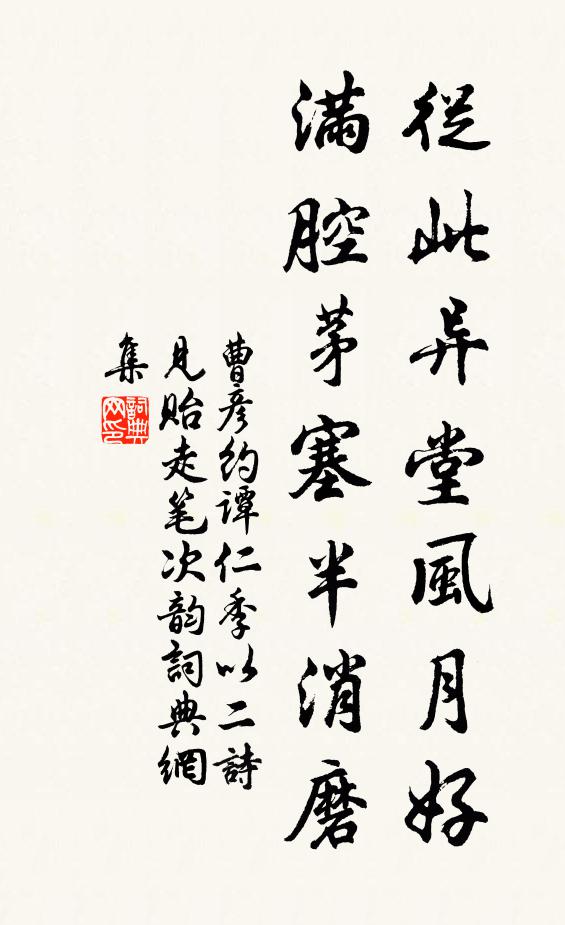 從此异堂風月好
滿腔茅塞半消磨
曹彦約譚仁季以二詩
見貽走笔次韵詞典網
集
詞典网印